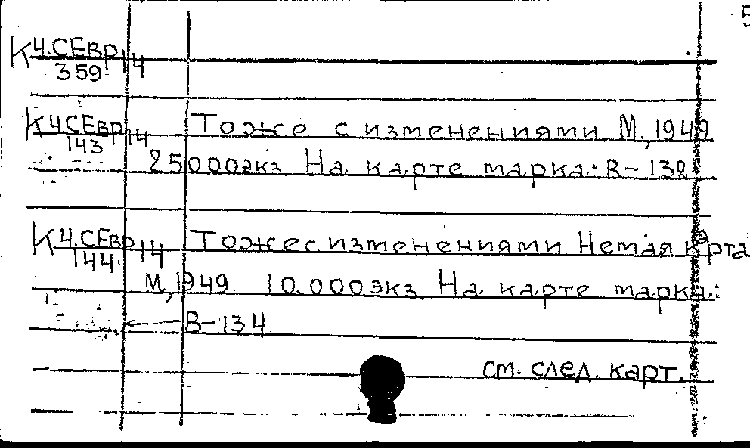 5
К Ч.СЕвр 14
359
К Ч.СЕвр 14 Тоже с изменениями М, 1949
143
25000экз На карте марка: В-132
К Ч.СЕвр 14 Тоже с изменениями Немая крта
144
М, 1949 10.000экз На карте марка:
В-134
см. след. карт.